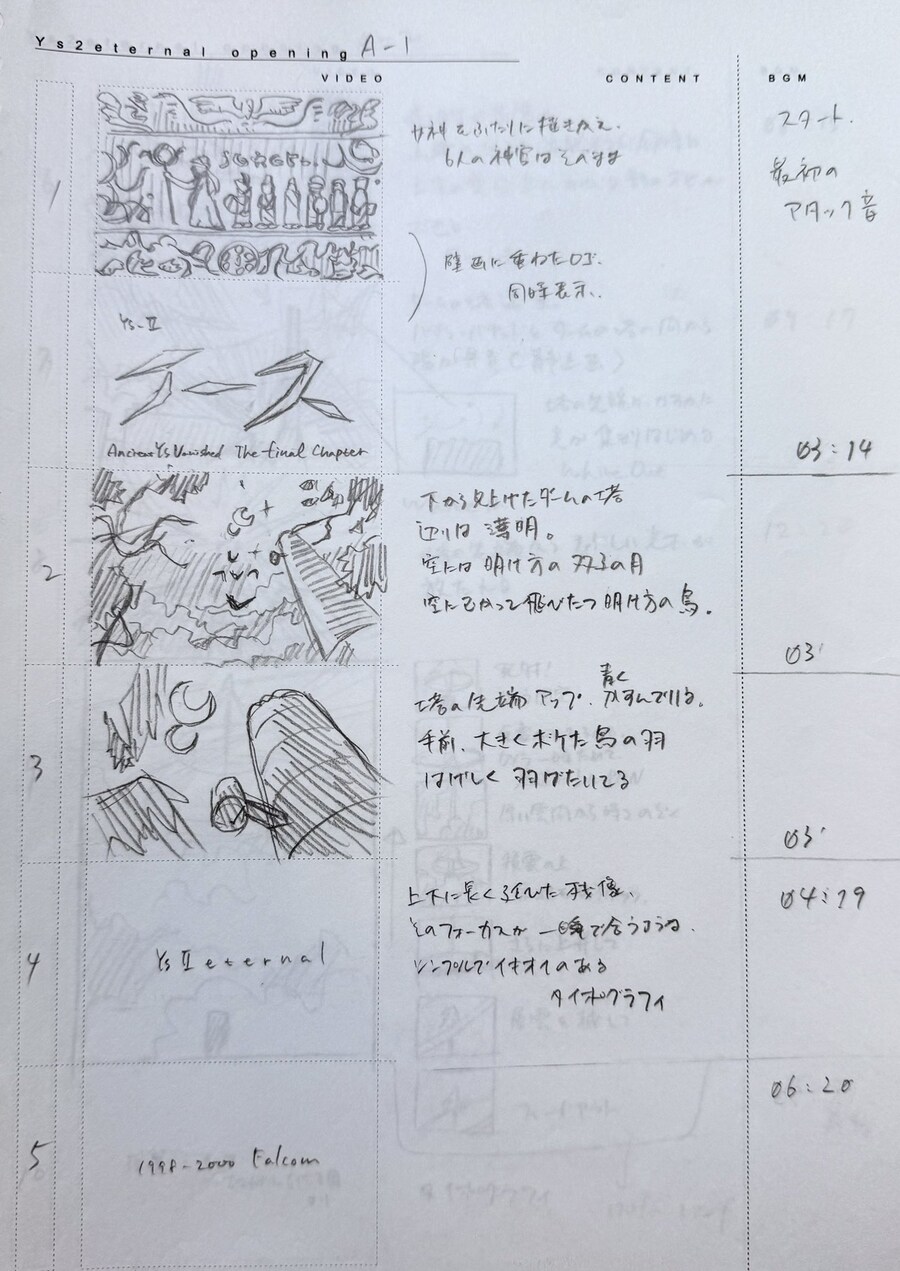 Ys2eternal opening A-1
VIDEO CONTENT BGM
1
女神をふたりに描きかえ.
6人の神官はそのまま
スタート.
最初の
アタック音
壁画に重ねたロゴ.
同時表示.
Ys-II
イース
Ancient Ys Vanished The final Chapter
03:14
2
下から見上げたダームの塔
辺りは薄明。
空には明け方の双子の月
空にむかって飛びたつ明け方の鳥。
03'
3
塔の先端アップ、青くかすんでいる。
手前、大きくボケた鳥の羽
はげしく羽ばたいてる
03'
4
Ys II eternal
上下に長く延びた残像、
そのフォーカスが一瞬で合うような.
シンプルでイキオイのある
タイポグラフィ
04:19
5
1998-2000 Falcom
06:20